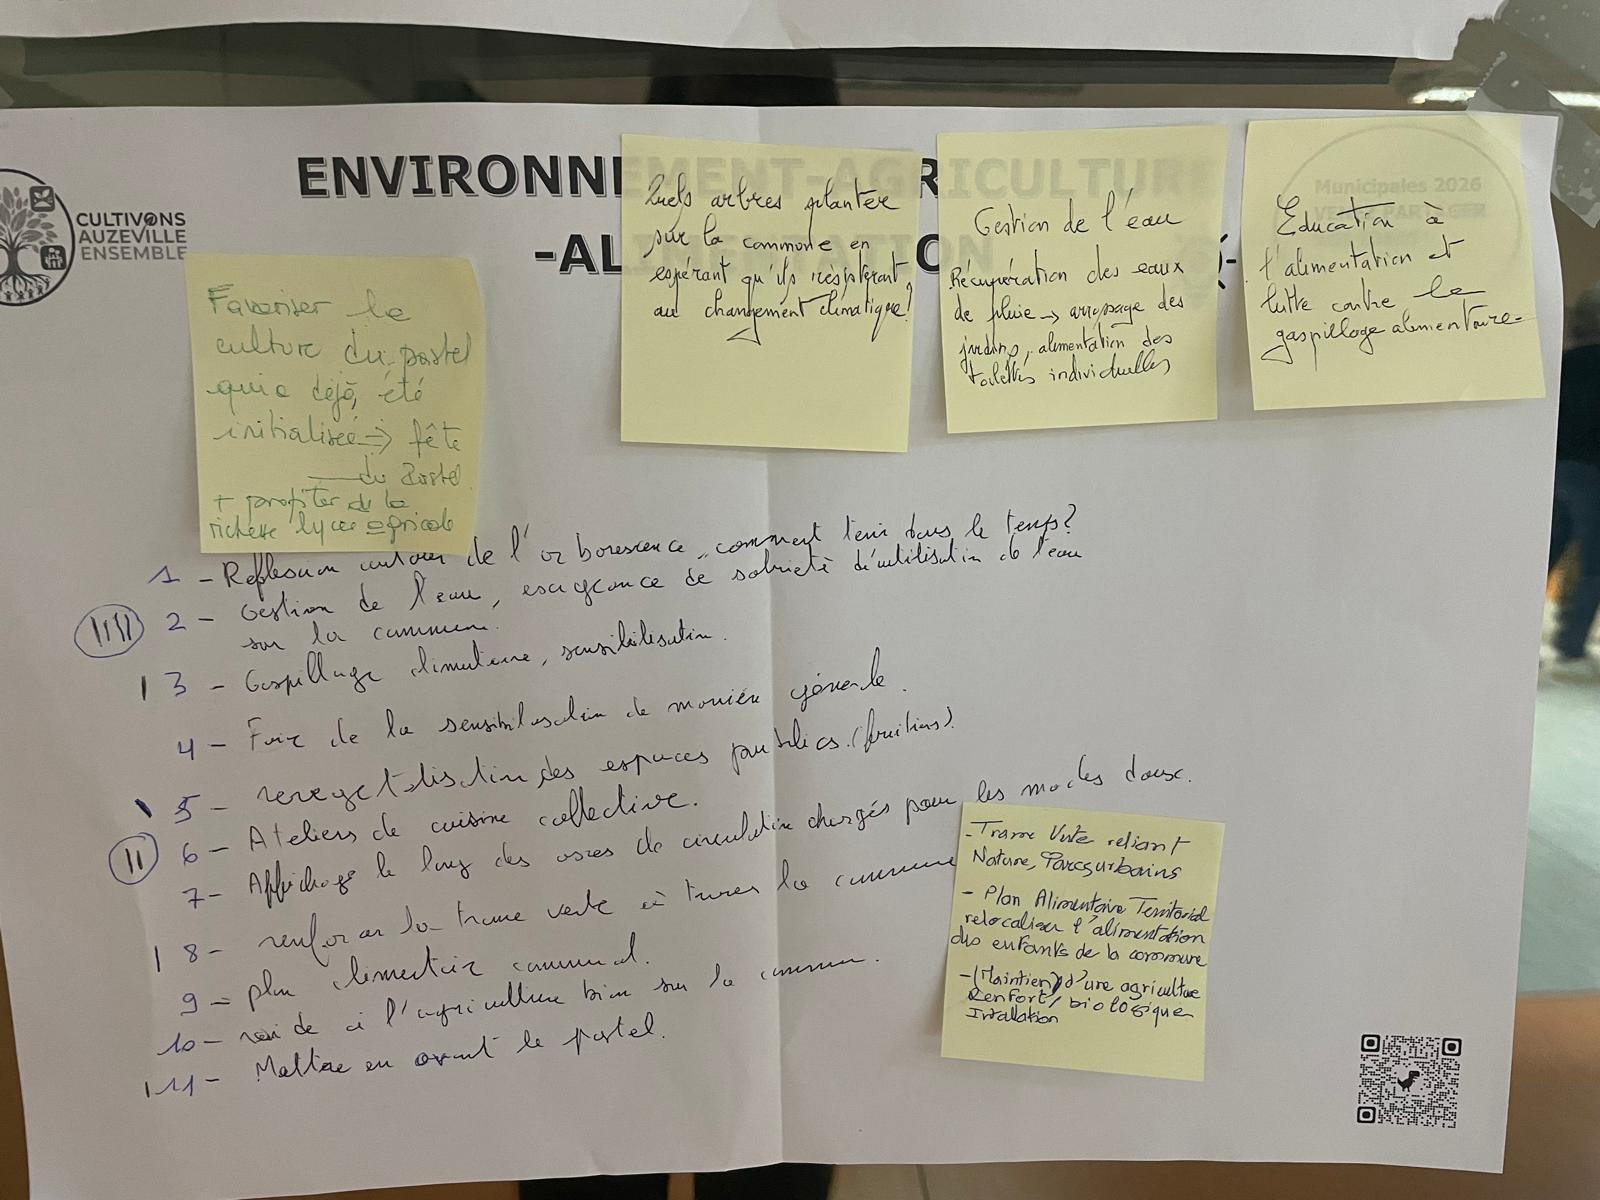 CULTIVONS
AUZEVILLE
ENSEMBLE
ENVIRONNEMENT-AGRICULTURE
-ALIMENTATION
Municipales 2026
Favoriser la
culture du pastel
qui a déjà été
initialisée → fête
du Pastel
+ profiter de la
richesse lycée agricole
Quels arbres planter
sur la commune en
espérant qu'ils résisteront
au changement climatique?
Gestion de l'eau
Récupération des eaux
de pluie → arrosage des
jardins, alimentation des
toilettes individuelles
Éducation à
l'alimentation et
lutte contre le
gaspillage alimentaire
1 - Réflexion autour de l'arborescence, comment tenir dans le temps?
2 - Gestion de l'eau, exigeance de sobrieté d'utilisation de l'eau
sur la commune.
3 - Gaspillage alimentaire, sensibilisation.
4 - Faire de la sensibilisation de manière générale.
5 - revegetalisation des espaces publics. (fruitiers).
6 - Ateliers de cuisine collective.
7 - Affichage le long des axes de circulation chargés pour les modes doux.
8 - renforcer la trame verte à travers la commune
9 - plan alimentaire communal.
10 - aide à l'agriculture bio sur la commune.
11 - Mettre en avant le pastel.
- Trame Verte reliant
Nature, Parcs urbains
- Plan Alimentaire Territorial
relocaliser l'alimentation
des enfants de la commune
- (Maintien) d'une agriculture
Renfort / biologique